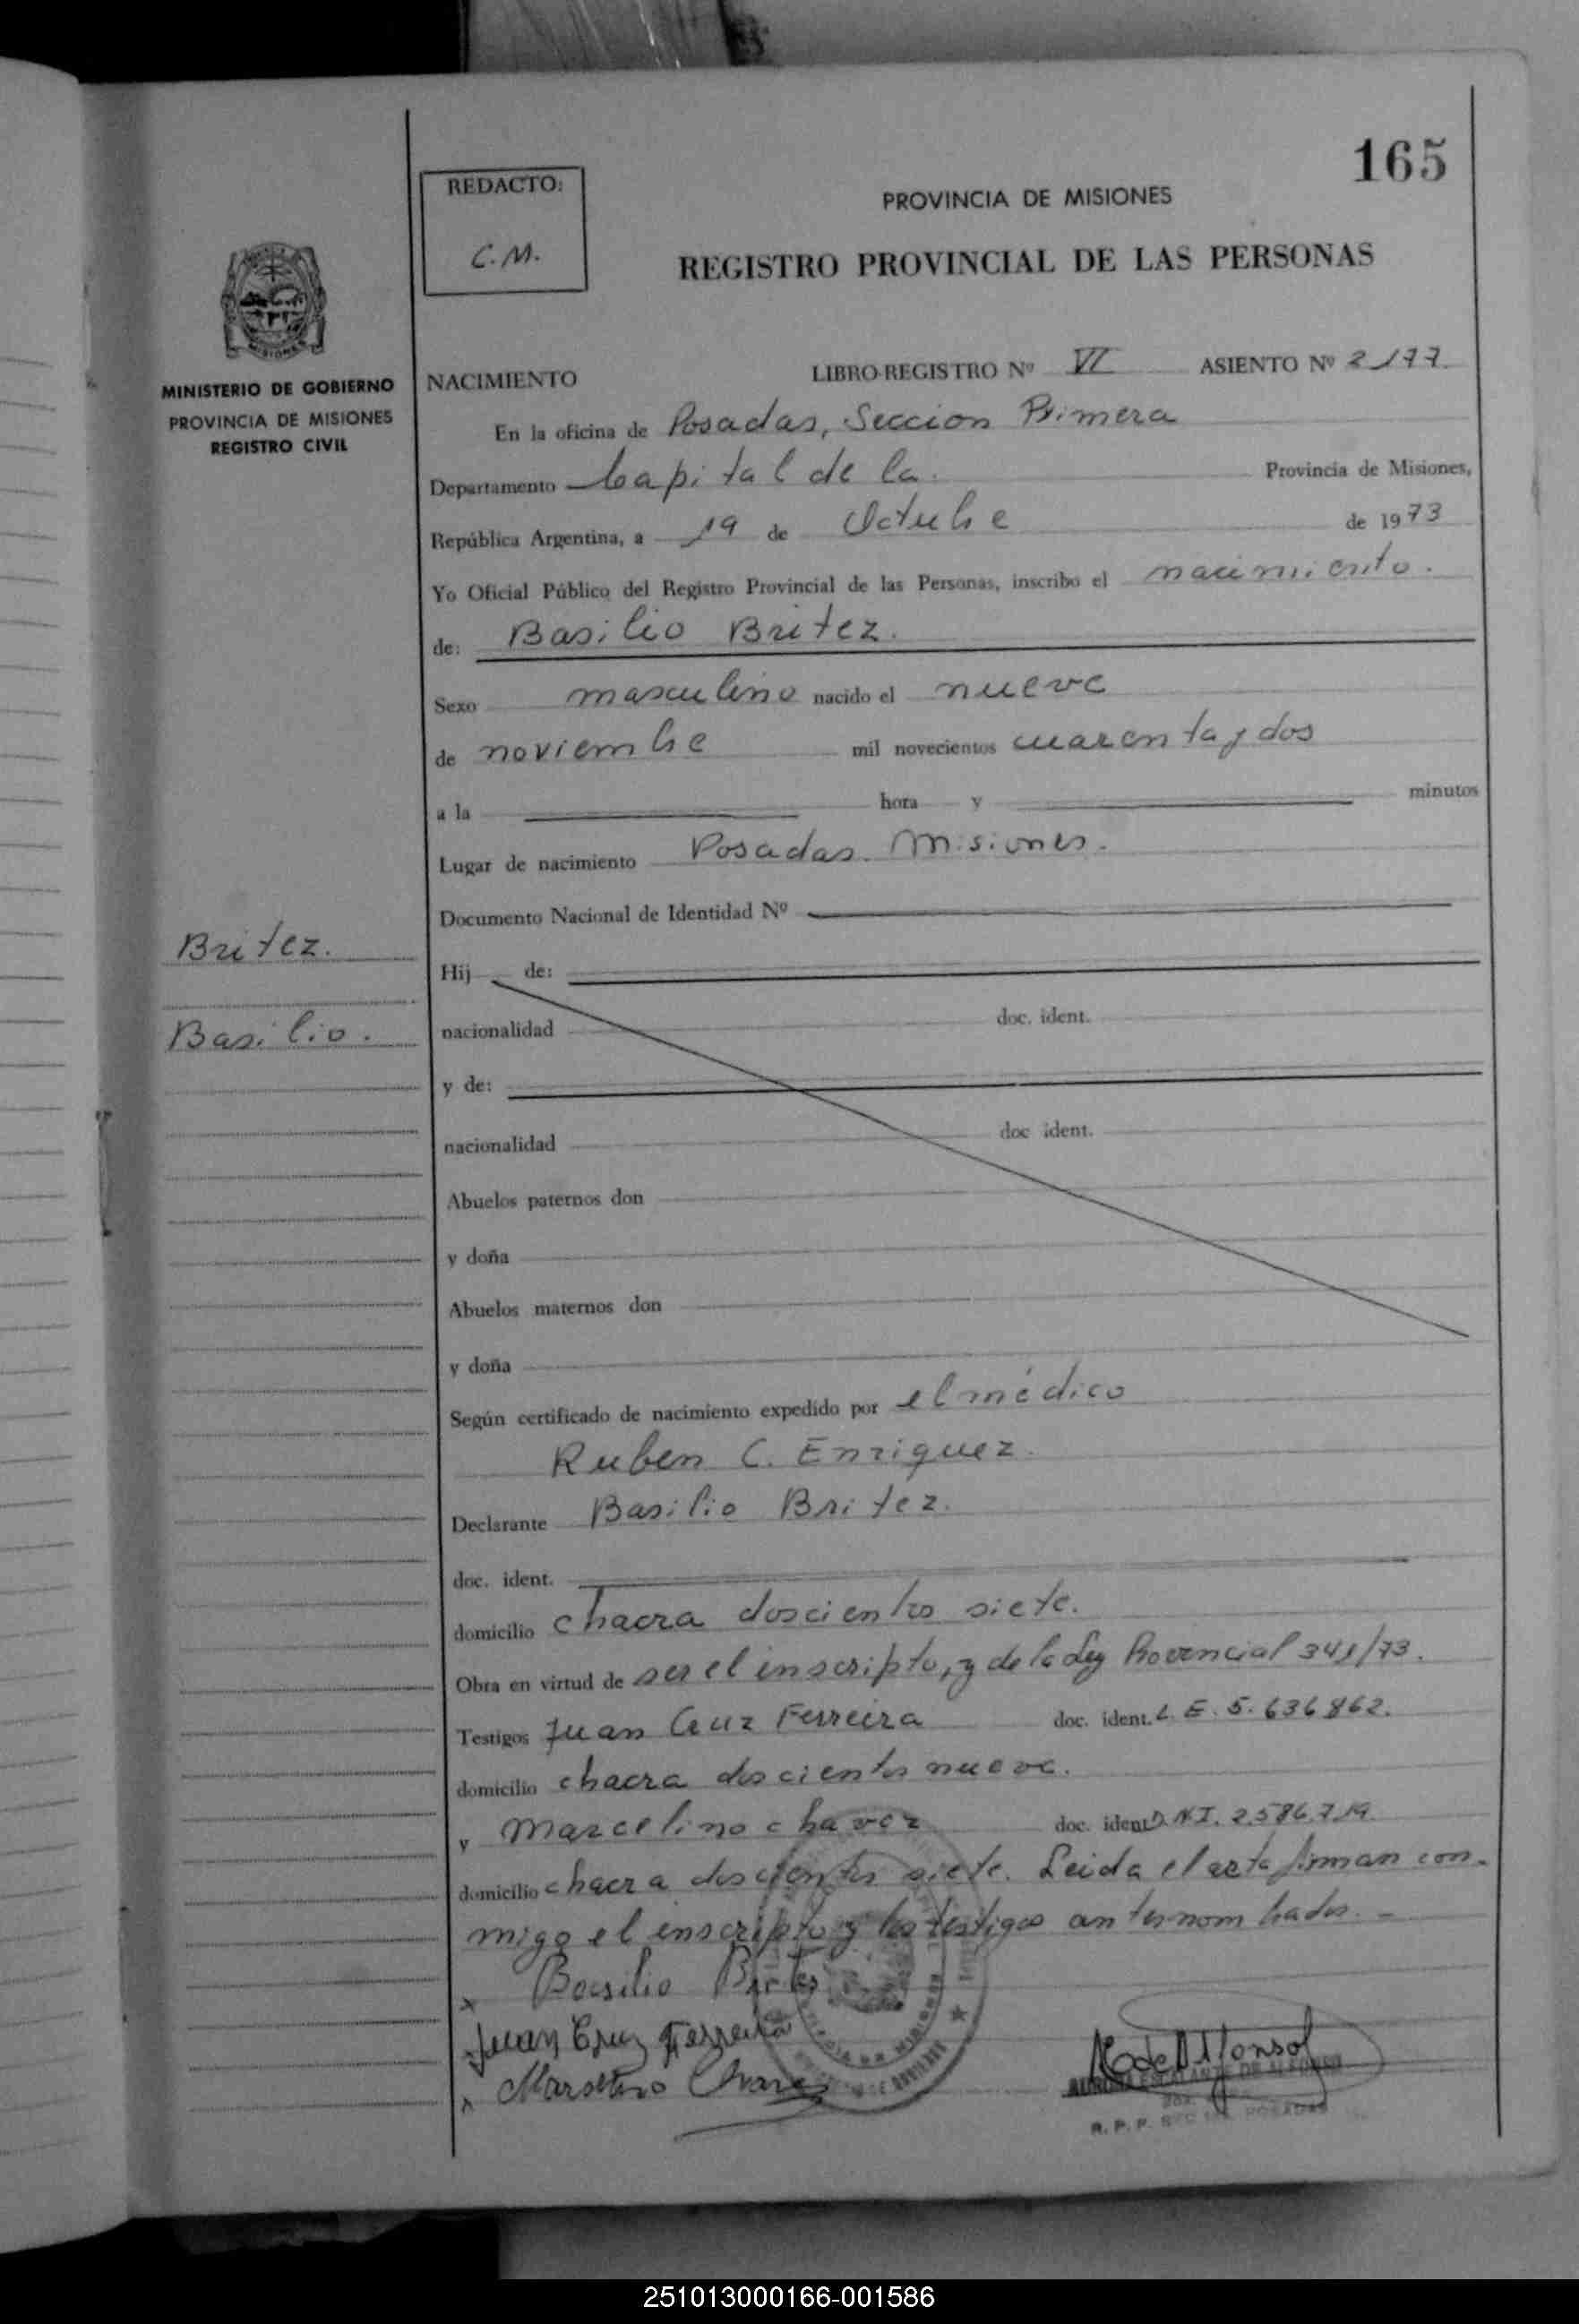 165
REDACTO:
C.M.
PROVINCIA DE MISIONES
REGISTRO PROVINCIAL DE LAS PERSONAS
MINISTERIO DE GOBIERNO
PROVINCIA DE MISIONES
REGISTRO CIVIL
NACIMIENTO LIBRO REGISTRO Nº VI ASIENTO Nº 2177
En la oficina de Posadas, Seccion Primera
Departamento Capital de la Provincia de Misiones,
República Argentina, a 19 de Octubre de 1973
Yo Oficial Público del Registro Provincial de las Personas, inscribo el nacimiento.
de: Basilio Britez.
Sexo masculino nacido el nueve
de noviembre mil novecientos cuarenta y dos
a la hora y minutos
Lugar de nacimiento Posadas. Misiones.
Documento Nacional de Identidad Nº
Britez.
Basilio.
Hij de:
nacionalidad doc. ident.
y de:
nacionalidad doc ident.
Abuelos paternos don
y doña
Abuelos maternos don
y doña
Según certificado de nacimiento expedido por el médico
Ruben C. Enriquez.
Declarante Basilio Britez.
doc. ident.
domicilio chacra doscientos siete.
Obra en virtud de ser el inscripto, y de la Ley Provincial 341/73.
Testigos Juan Cruz Ferreira doc. ident. L.E. 5.636.862.
domicilio chacra doscientos nueve.
y Marcelino chavez doc. ident D.N.I. 2.586.719.
domicilio chacra doscientos siete. Leida el acta firman con-
migo el inscripto y los testigos antesnombrados. -
x Basilio Brites
x Juan Cruz Ferreira
x Marcelino Chavez
AURORA ESCALANTE DE ALFONSO
R. P. P. SEC 1ra. POSADAS
251013000166-001586